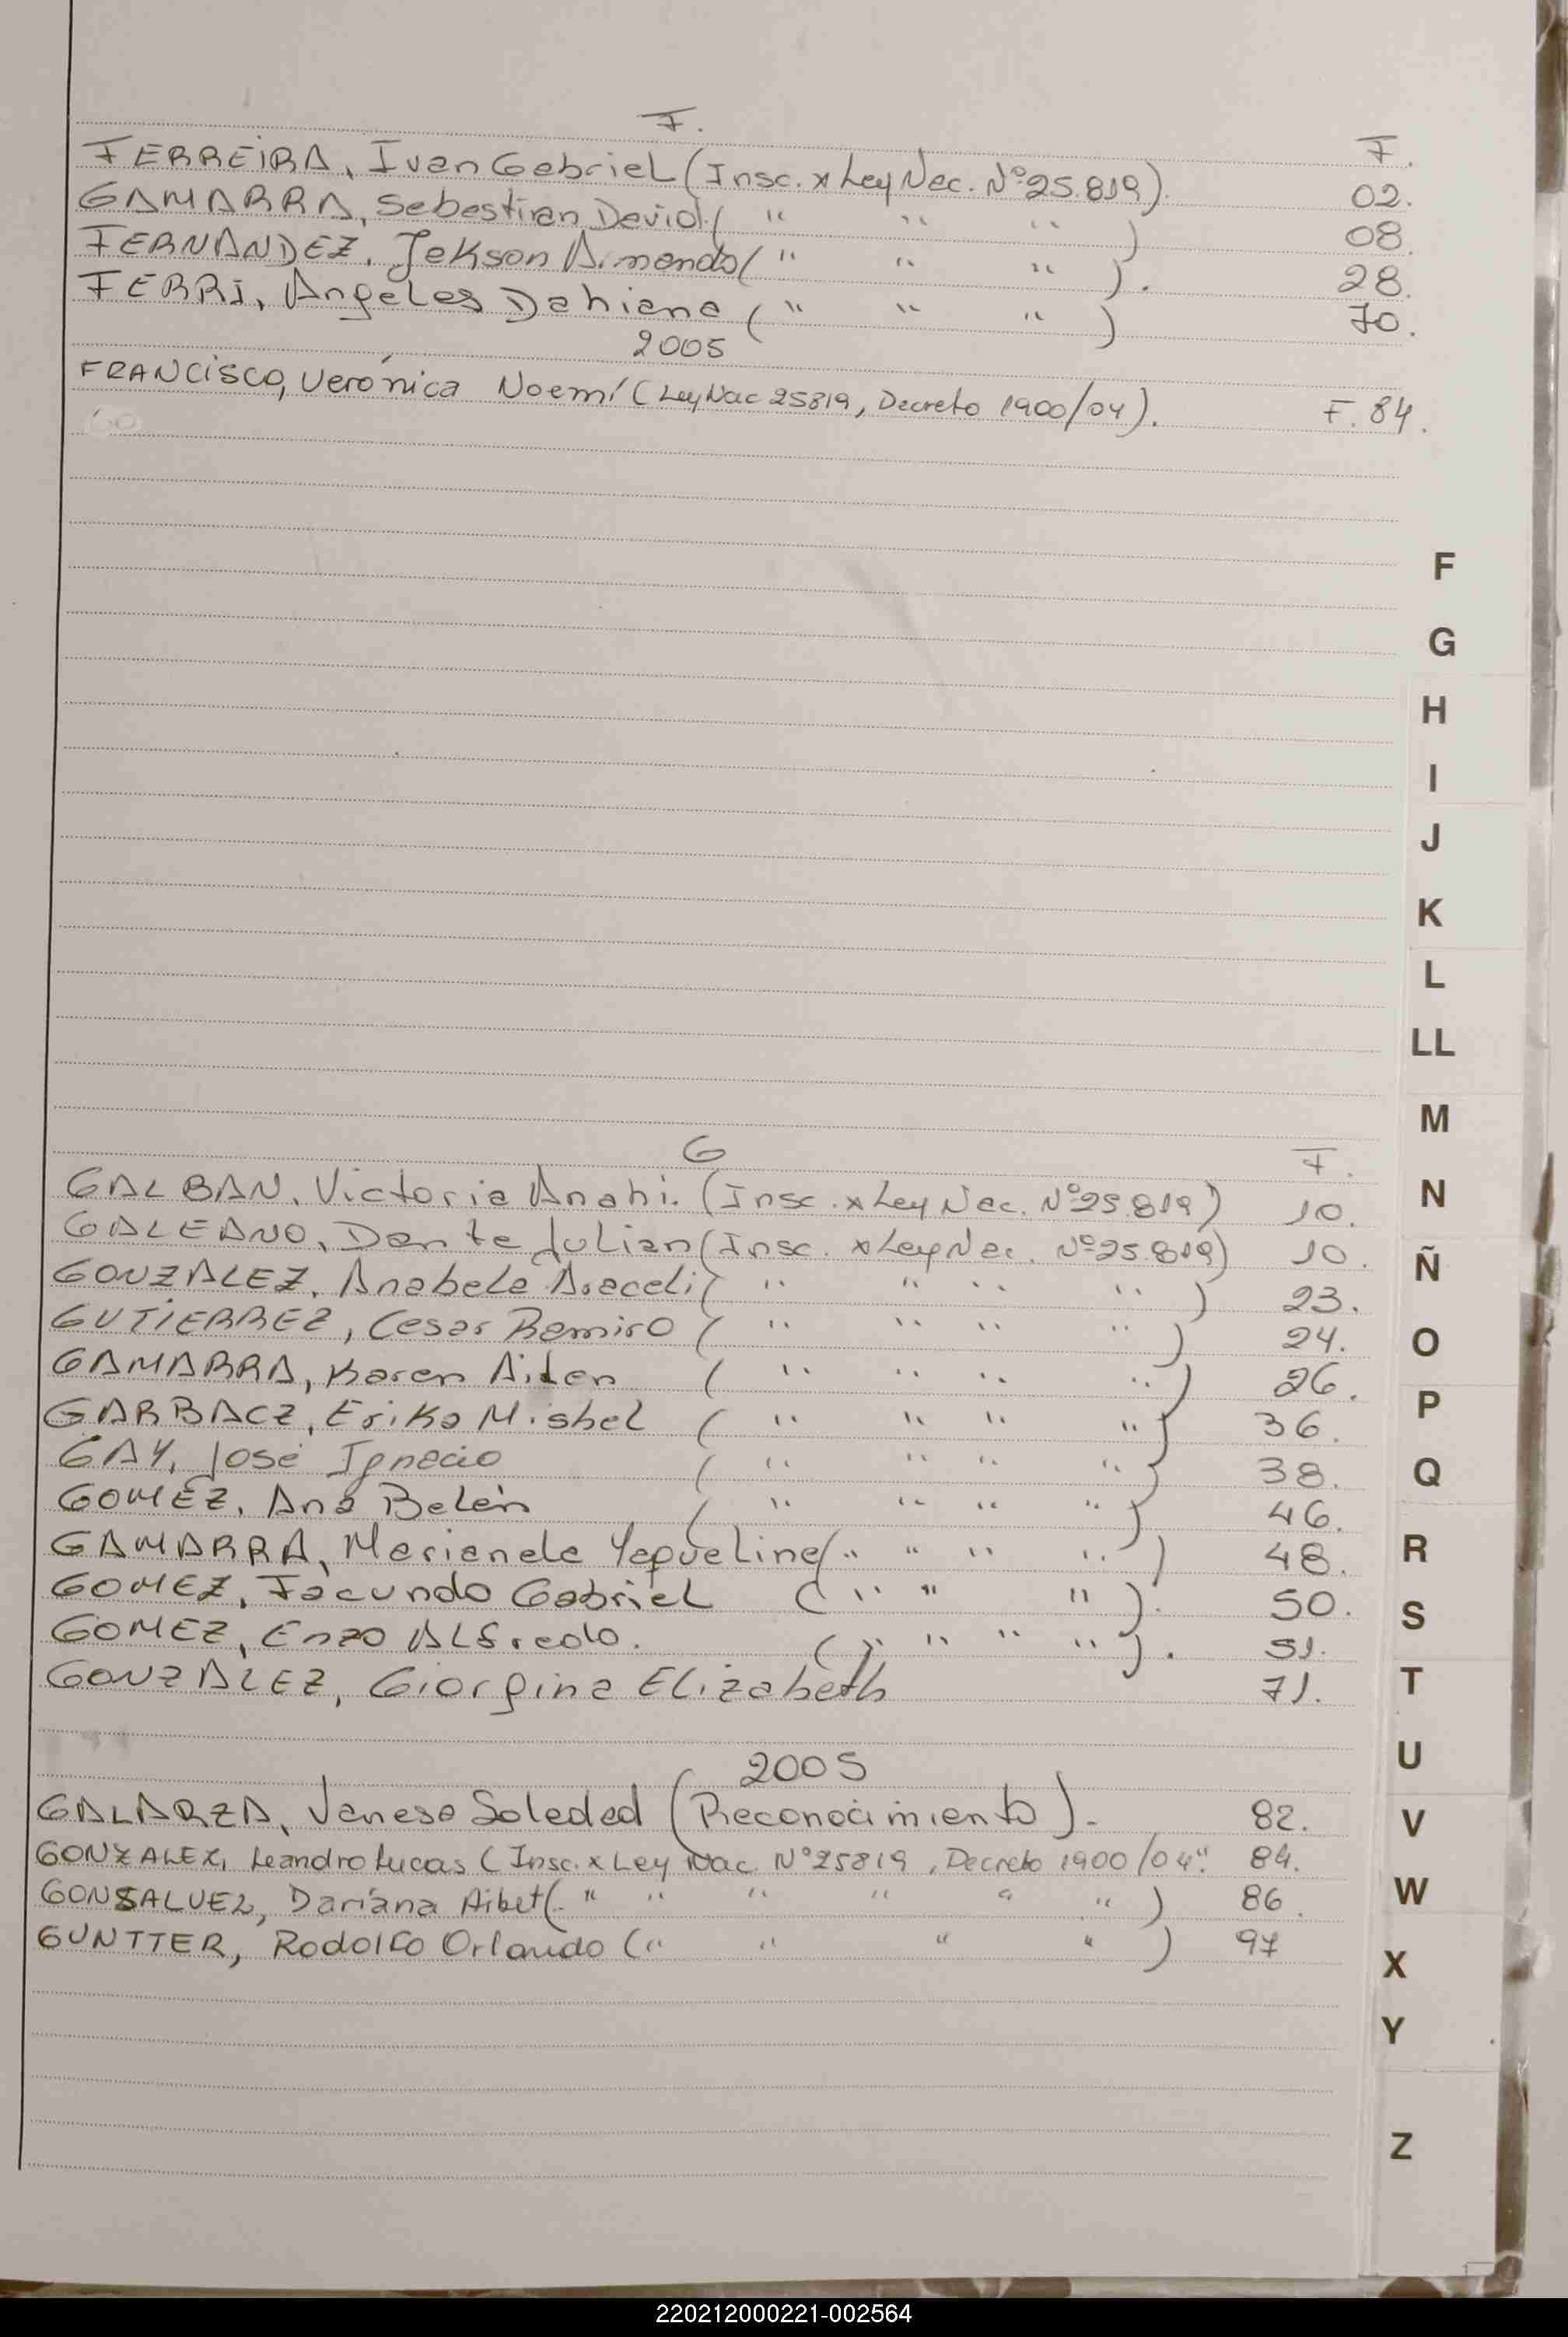 F.
F.
FERREIRA, Ivan Gabriel (Insc. x Ley Nac. Nº 25.819). 02.
GAMARRA, Sebastian David (" " ") 08.
FERNANDEZ, Jekson Armando (" " "). 28.
FERRI, Angeles Dahiana (" " ") 70.
2005
FRANCISCO, Verónica Noemí (Ley Nac 25819, Decreto 1900/04). F. 84.
F
G
H
I
J
K
L
LL
M
N
Ñ
O
P
Q
R
S
T
U
V
W
X
Y
Z
G
F.
GALBAN, Victoria Anahi. (Insc. x Ley Nac. Nº 25.819) 10.
GALEANO, Dante Julian (Insc. x Ley Nac. Nº 25.819) 10.
GONZALEZ, Anabela Araceli (" " " ") 23.
GUTIERREZ, Cesar Ramiro (" " " ") 24.
GAMARRA, Karen Ailen (" " " ") 26.
GARBACZ, Erika Mishel (" " " ") 36.
GAY, José Ignacio (" " " ") 38.
GOMEZ, Ana Belén (" " " ") 46.
GAMARRA, Marianela Yaqueline (" " " ") 48.
GOMEZ, Facundo Gabriel (" " "). 50.
GOMEZ, Enzo Alfredo. (" " " " "). 51.
GONZALEZ, Giorgina Elizabeth 71.
2005
GALARZA, Vanesa Soledad (Reconocimiento).- 82.
GONZALEZ, Leandro Lucas (Insc. x Ley Nac. Nº 25819, Decreto 1900/04". 84.
GONSALVEZ, Dariana Aibet (" " " " " ") 86.
GUNTTER, Rodolfo Orlando (" " " ") 97
220212000221-002564